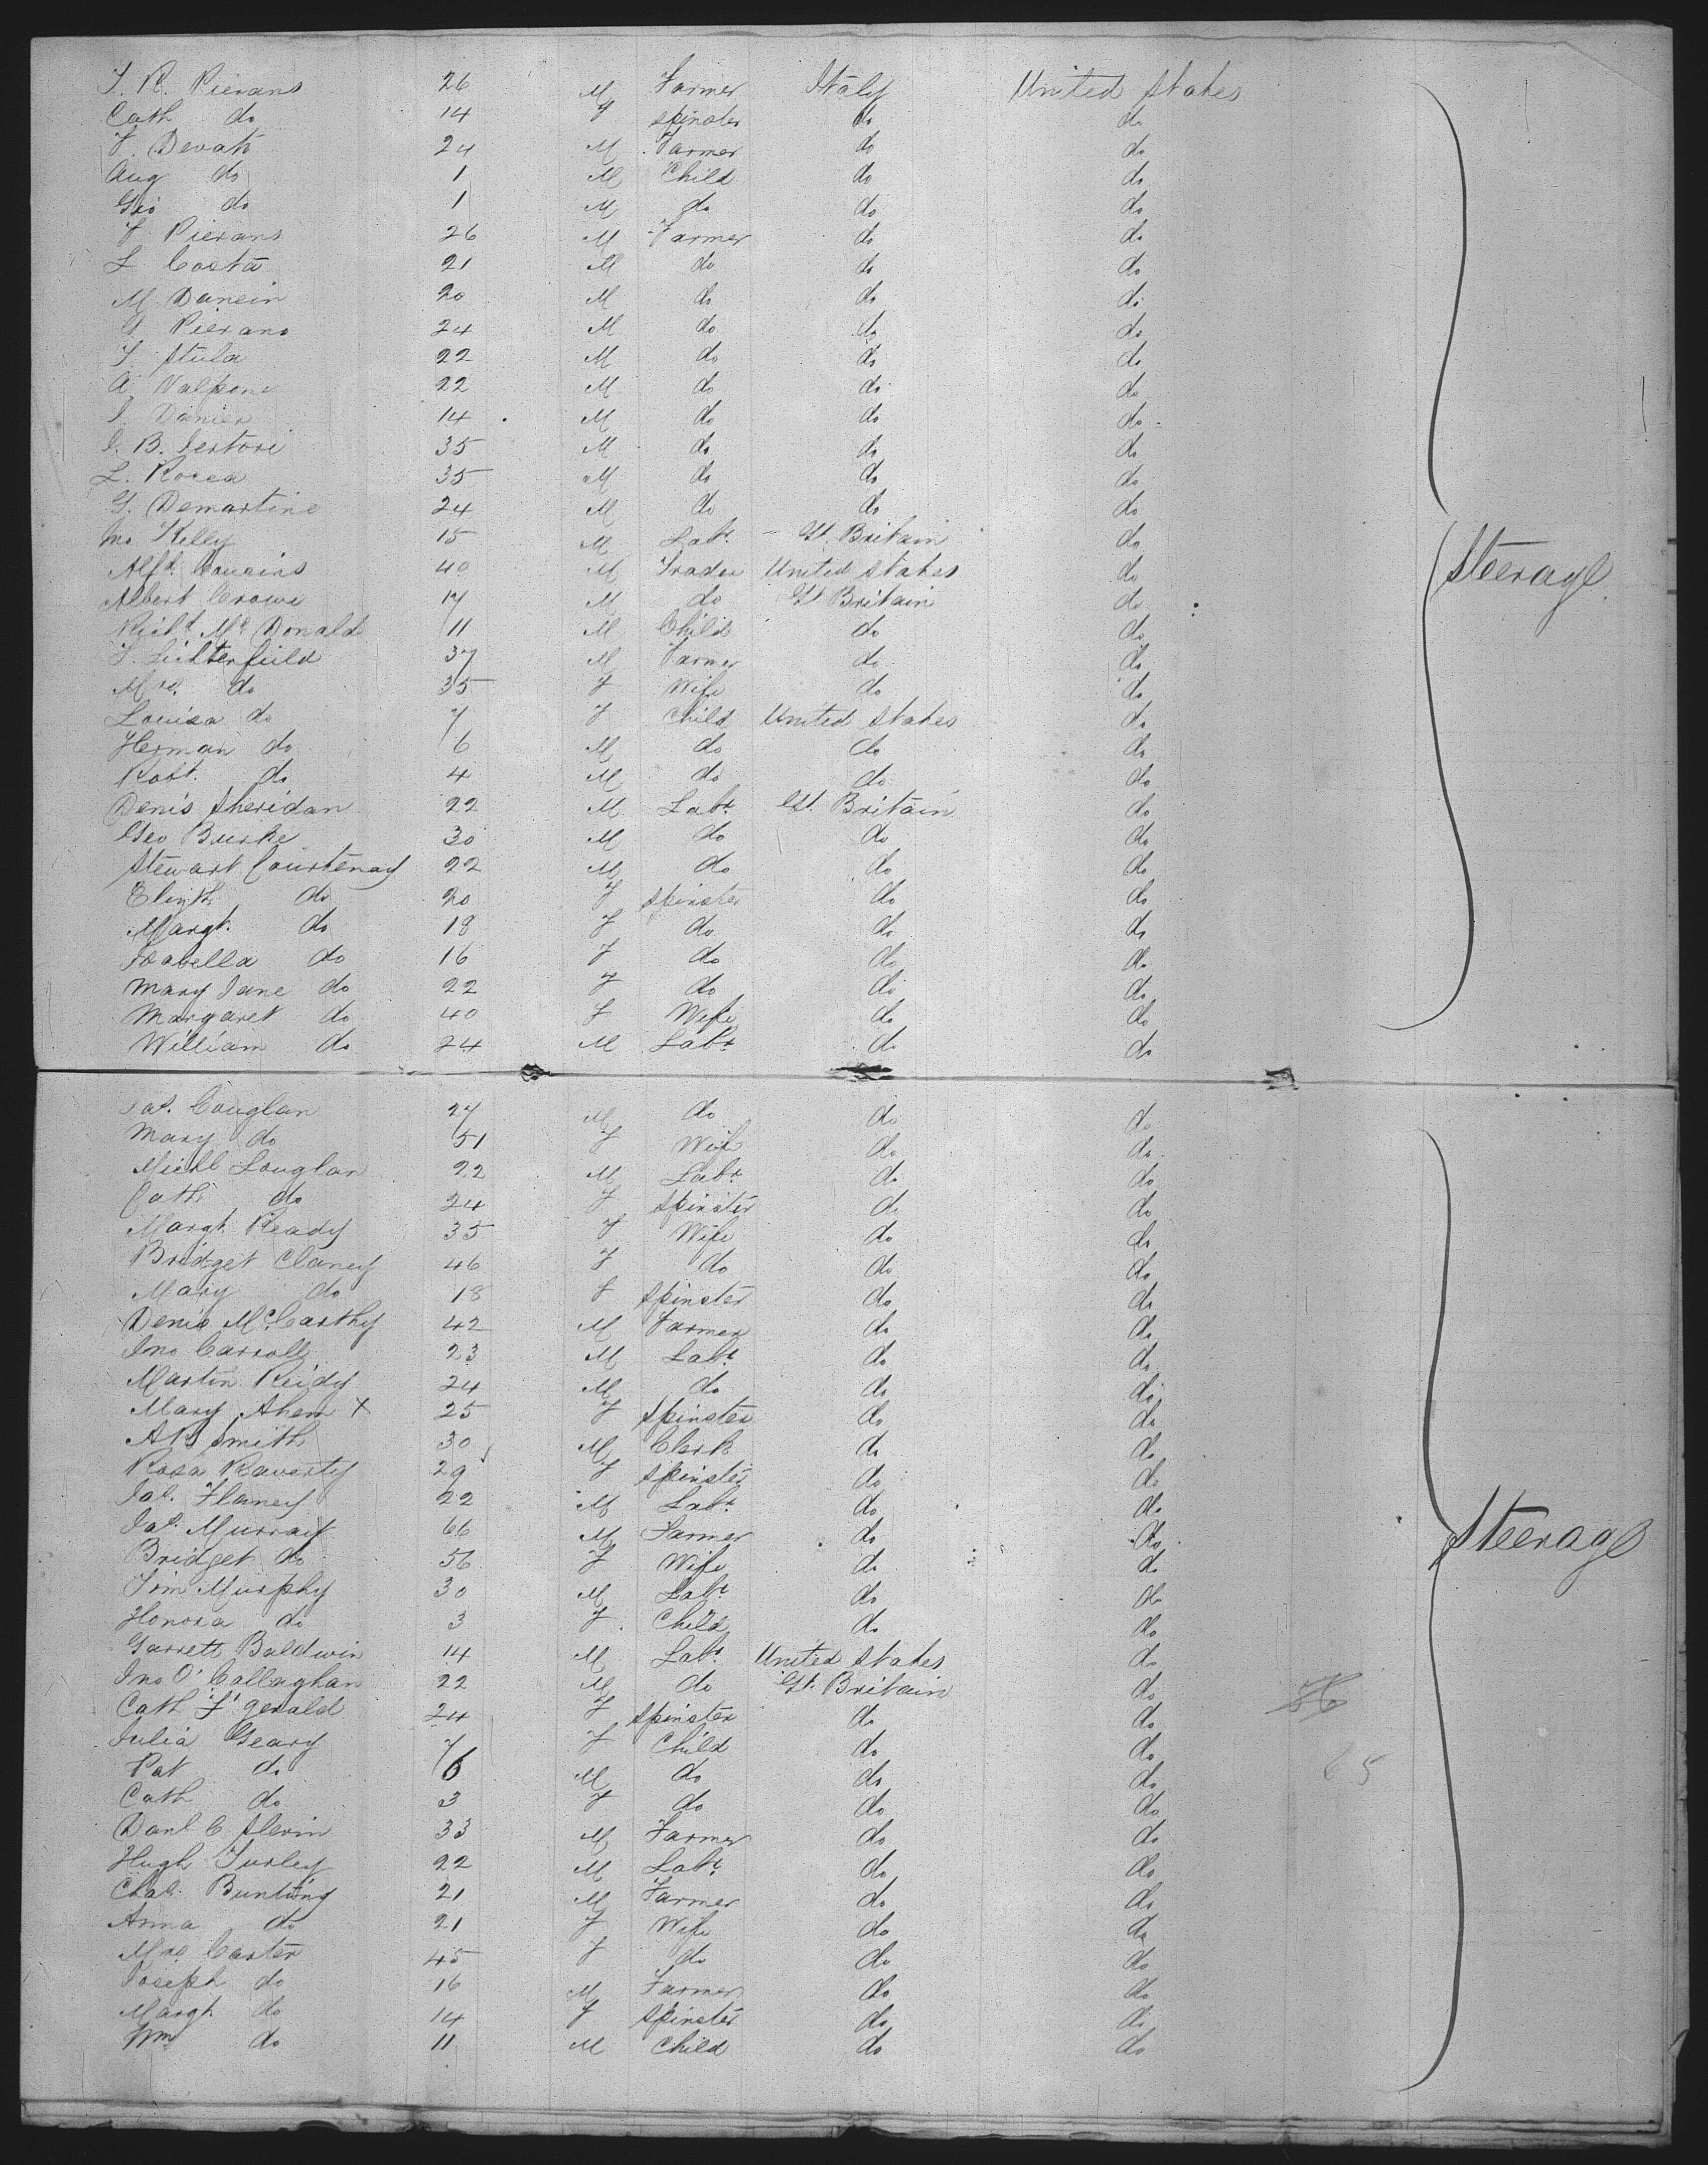 J. R. Pierans 26 M Farmer Italy United States
Cath do 14 F spinster do do
F. Devoto 24 M Farmer do do
Aug do 1 M Child do do
Gio do 1 M do do do
F Pierans 26 M Farmer do do
L Costa 21 M do do do
M Danein 20 M do do do
G Pierano 24 M do do do
J. Stula 22 M do do do
A. Valpone 22 M do do do
Danier 14 M do do do
B. Sertori 35 M do do do
L. Rocca 35 M do do do
G. Demartine 24 M do do do
Jno Kelly 15 M Labr. Gt. Britain do
Alfd. Cousins 40 M Trader United States do
Albert Crowe 17 M do Gt Britain do
Richd. Mc Donald 11 M Child do do
J. Lichterfield 37 M Farmer do do
Mrs. do 35 F Wife do do
Louisa do 7 F Child United States do
Herman do 6 M do do do
Robt. do 4 M do do do
Denis Sheridan 22 M Labr. Gt. Britain do
Geo Burke 30 M do do do
Stewart Courtenay 22 M do do do
Elizth do 20 F spinster do do
Margt. do 18 F do do do
Isabella do 16 F do do do
Mary Jane do 22 F do do do
Margaret do 40 F Wife do do
William do 24 M Labr. do do
Steerage
Jas. Couglan 27 M do do do
Mary do 51 F Wife do do
Michl Louglan 22 M Labr. do do
Cath do 24 F spinster do do
Margt. Ready 35 F Wife do do
Bridget Clancy 46 F do do do
Mary do 18 F spinster do do
Denis McCarthy 42 M Farmer do do
Jno Carroll 23 M Labr. do do
Martin Reidy 24 M do do do
Mary Ahern X 25 F Spinster do do
Smith 30 M Clerk do do
Rosa Raverty 29 F spinster do do
Jas. Flaney 22 M Labr. do do
Jas. Murray 66 M Farmer do do
Bridget do 56 F Wife do do
Tim Murphy 30 M Labr. do do
Honora do 3 F Child do do
Garrett Baldwin 14 M Labr. United States do
Jno O'Callaghan 22 M do Gt. Britain do
Cath F'gerald 24 F spinster do do
Julia Geary 7 F Child do do
Pat do 6 M do do do 65
Cath do 3 F do do do
Danl. C Slevin 33 M Farmer do do
Hugh Turley 22 M Labr. do do
Chas. Bunting 21 M Farmer do do
Anna do 21 F Wife do do
Mrs. Carter 45 F do do do
Joseph do 16 M Farmer do do
Margt. do 14 F Spinster do do
Wm. do 11 M Child do do
Steerage